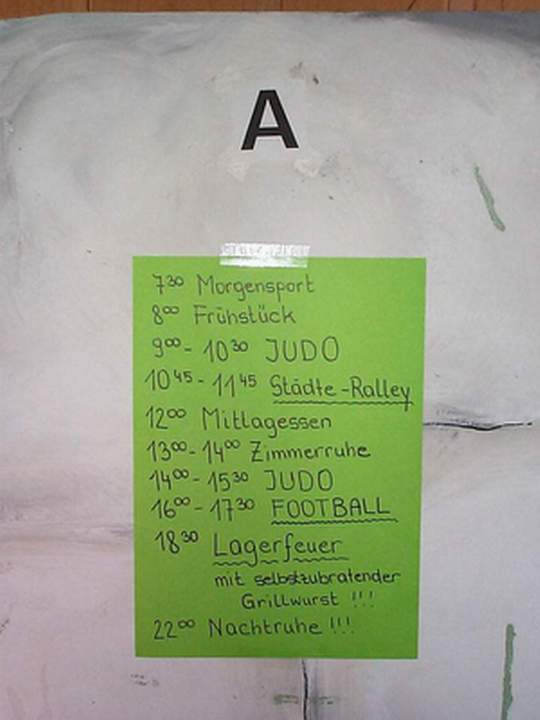 A
7³⁰ Morgensport
8⁰⁰ Frühstück
9⁰⁰ - 10³⁰ JUDO
10⁴⁵ - 11⁴⁵ Städte-Ralley
12⁰⁰ Mittagessen
13⁰⁰ - 14⁰⁰ Zimmerruhe
14⁰⁰ - 15³⁰ JUDO
16⁰⁰ - 17³⁰ FOOTBALL
18³⁰ Lagerfeuer
mit selbstzubratender
Grillwurst !!!
22⁰⁰ Nachtruhe !!!